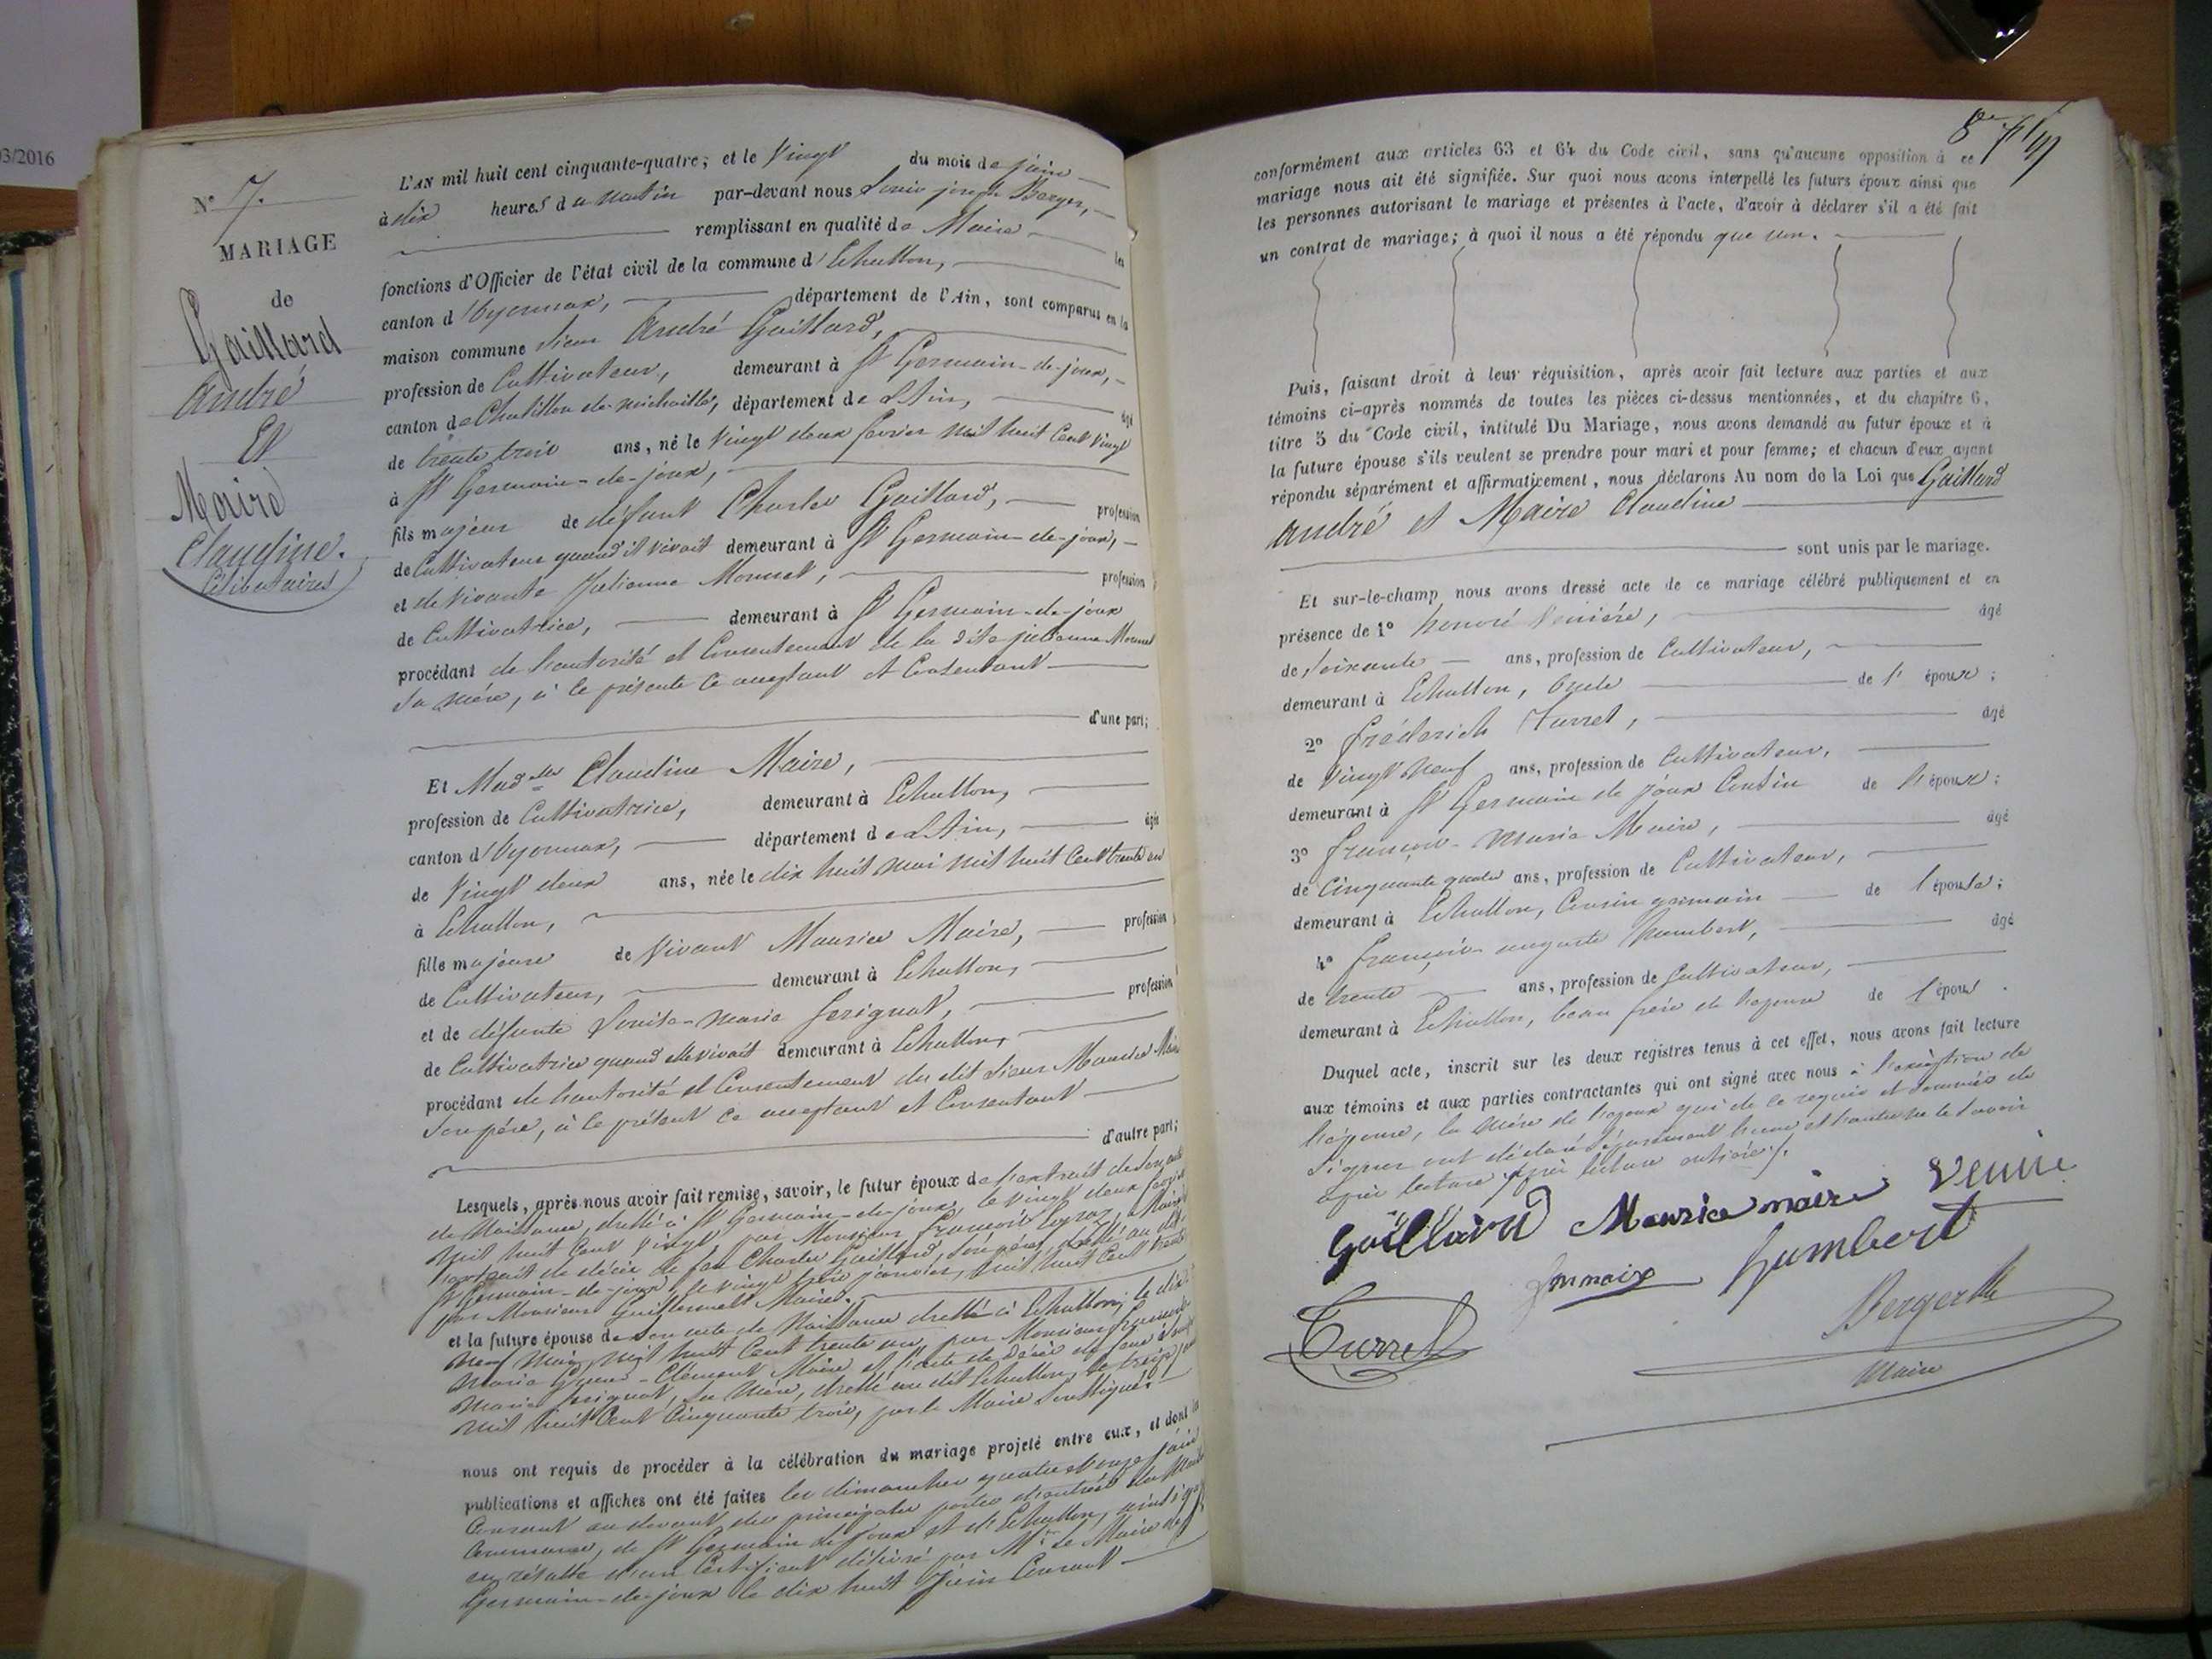 03/2016
N° 7.
MARIAGE
de
Gaillard
André
Et
Maire
Claudine.
Célibataires
L'AN mil huit cent cinquante-quatre; et le Vingt du mois de juin
à dix heures du matin par-devant nous Louis joseph Berger,
remplissant en qualité de Maire les
fonctions d'Officier de l'état civil de la commune d'Echallon,
canton d'Oyonnax, département de l'Ain, sont comparus en la
maison commune Sieur André Gaillard,
profession de Cultivateur, demeurant à St Germain-de-joux,
canton de Chatillon-de-michaille, département de l'Ain, âgé
de trente trois ans, né le Vingt deux fevrier mil huit Cent Vingt
à St Germain-de-joux,
fils majeur de défunt Charles Gaillard, profession
de Cultivateur quand il vivait demeurant à St Germain-de-joux,
et de vivante Julienne profession
de Cultivatrice, demeurant à St Germain-de-joux
procédant de l'autorité et Consentement de la dite julienne
Sa mère, à ce présente ce acceptant et Consentant
d'une part;
Et Mad.lle Claudine Maire,
profession de Cultivatrice, demeurant à Echallon,
canton d'Oyonnax, département de l'Ain, âgée
de Vingt deux ans, née le dix huit mai mil huit Cent trente un
à Echallon,
fille majeure de Vivant Maurice Maire, profession
de Cultivateur, demeurant à Echallon,
et de défunte Louise-Marie profession
de Cultivatrice quand elle vivait demeurant à Echallon,
procédant de l'autorité et Consentement du dit Sieur Maurice Maire
Son père, à ce présent ce acceptant et Consentant
d'autre part;
Lesquels, après nous avoir fait remise, savoir, le futur époux de l'extrait de son acte
de Naissance, dressé à St Germain-de-joux, le Vingt deux fevrier
Mil huit Cent Vingt, par Monsieur François Maire
l'extrait de décès de feu Charles Gaillard, Son père, dressé au dit
St Germain-de-joux, le Vingt trois janvier, mil huit Cent trente
par Monsieur Maire.
et la future épouse de Son acte de Naissance dressé à Echallon, le dix
neuf Mai, mil huit Cent trente un, par Monsieur
Marie Clément Maire et l'acte de Décès de
Marie Sa Mère, dressé au dit Echallon, le
mil huit Cent Cinquante trois, par le Maire Soussigné.
nous ont requis de procéder à la célébration du mariage projeté entre eux, et dont les
publications et affiches ont été faites les dimanches quatre et onze juin
Courant au devant des principales portes d'entrée des Maisons
Communes, de St Germain de joux et d'Echallon, ainsi qu'il
en résulte d'un Certificat délivré par Mr le Maire de St
Germain-de-joux le dix huit Juin Courant
8e
conformément aux articles 63 et 64 du Code civil, sans qu'aucune opposition à ce
mariage nous ait été signifiée. Sur quoi nous avons interpellé les futurs époux ainsi que
les personnes autorisant le mariage et présentes à l'acte, d'avoir à déclarer s'il a été fait
un contrat de mariage; à quoi il nous a été répondu que non.
Puis, faisant droit à leur réquisition, après avoir fait lecture aux parties et aux
témoins ci-après nommés de toutes les pièces ci-dessus mentionnées, et du chapitre 6,
titre 5 du Code civil, intitulé Du Mariage, nous avons demandé au futur époux et à
la future épouse s'ils veulent se prendre pour mari et pour femme; et chacun d'eux ayant
répondu séparément et affirmativement, nous déclarons Au nom de la Loi que Gaillard
André et Maire Claudine
sont unis par le mariage.
Et sur-le-champ nous avons dressé acte de ce mariage célébré publiquement et en
présence de 1° honoré âgé
de Soixante ans, profession de Cultivateur,
demeurant à Echallon, Oncle de l'époux;
2° fréderich Turrel, âgé
de Vingt Neuf ans, profession de Cultivateur,
demeurant à St Germain de joux Cousin de l'époux;
3° françois-Marie Maire, âgé
de Cinquante quatre ans, profession de Cultivateur,
demeurant à Echallon, Cousin germain de l'épouse;
4° françois auguste humbert, âgé
de trente ans, profession de Cultivateur,
demeurant à Echallon, beau frère de l'époux de l'époux.
Duquel acte, inscrit sur les deux registres tenus à cet effet, nous avons fait lecture
aux témoins et aux parties contractantes qui ont signé avec nous à l'exception de
l'épouse, la Mère de l'époux qui de ce requis et sommés de
signer ont déclaré séparément l'une et l'autre ne le Savoir
après lecture
Gaillard Maurice maire
humbert
Turrel
Berger
Maire